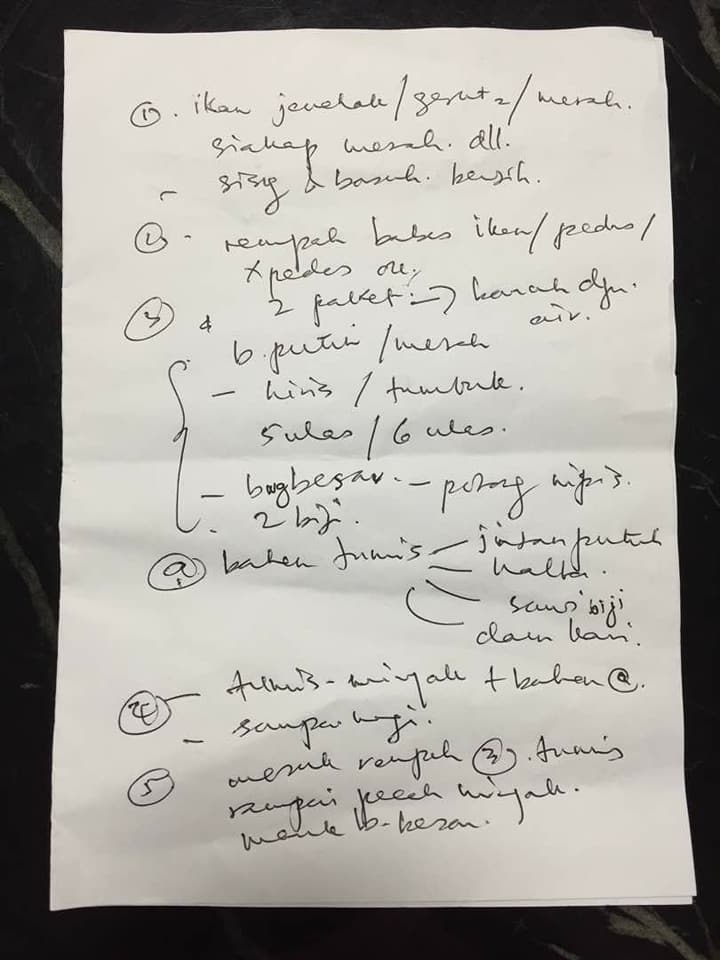 ① . ikan jenehak/gerut2/merah.
siakap merah. dll.
- sisig & basuh. bersih.
② - rempah babas ikan/pedas/
X pedas
③ 2 paket → karah dgn.
air.
b. putih/merah
- hiris / tumbuk.
5 ulas / 6 ulas.
- bwg besar. - potong nipis.
2 biji.
ⓐ bahan tumis - jintan putih
- halba.
sawi biji
daun kari.
④ - tumis - minyak + bahan ⓐ.
- sampai wangi.
⑤ masuk rempah ③. tumis
sampai pecah minyak.
masuk b. besar.